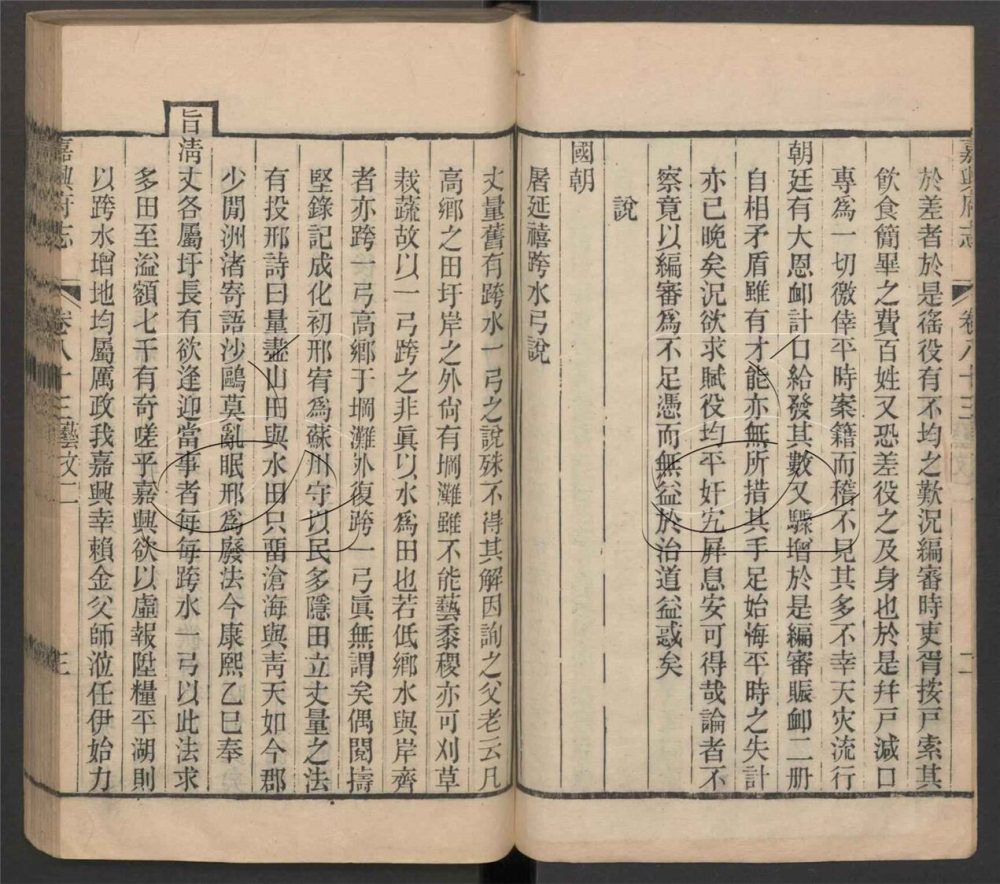 嘉興府志 卷八十三 二
於差者於是徭役有不均之歎況編審時吏胥按戶索其
飲食簡畢之費百姓又恐差役之及身也於是幷戶減口
專為一切徼倖平時案籍而稽不見其多不幸天灾流行
朝廷有大恩卹計口給發其數又驟增於是編審賑卹二册
自相矛盾雖有才能亦無所措其手足始悔平時之失計
亦已晚矣況欲求賦役均平奸宄屏息安可得哉論者不
察竟以編審為不足憑而無益於治道益惑矣
說
國朝
屠延禧跨水弓說
丈量舊有跨水一弓之說殊不得其解因詢之父老云凡
高鄉之田圩岸之外尙有堈灘雖不能藝黍稷亦可刈草
栽蔬故以一弓跨之非眞以水爲田也若低鄉水與岸齊
者亦跨一弓高鄉于堈灘外復跨一弓眞無謂矣偶閱擣
堅錄記成化初邢宥爲蘇州守以民多隱田立丈量之法
有投邢詩曰量盡山田與水田只畱滄海與靑天如今郡
少閒洲渚寄語沙鷗莫亂眠邢爲廢法今康熙乙巳奉
旨淸丈各屬圩長有欲逢迎當事者每每跨水一弓以此法求
多田至溢額七千有奇嗟乎嘉興欲以虛報陞糧平湖則
以跨水增地均屬厲政我嘉興幸賴金父師涖任伊始力
嘉興府志 卷八十三藝文二 三